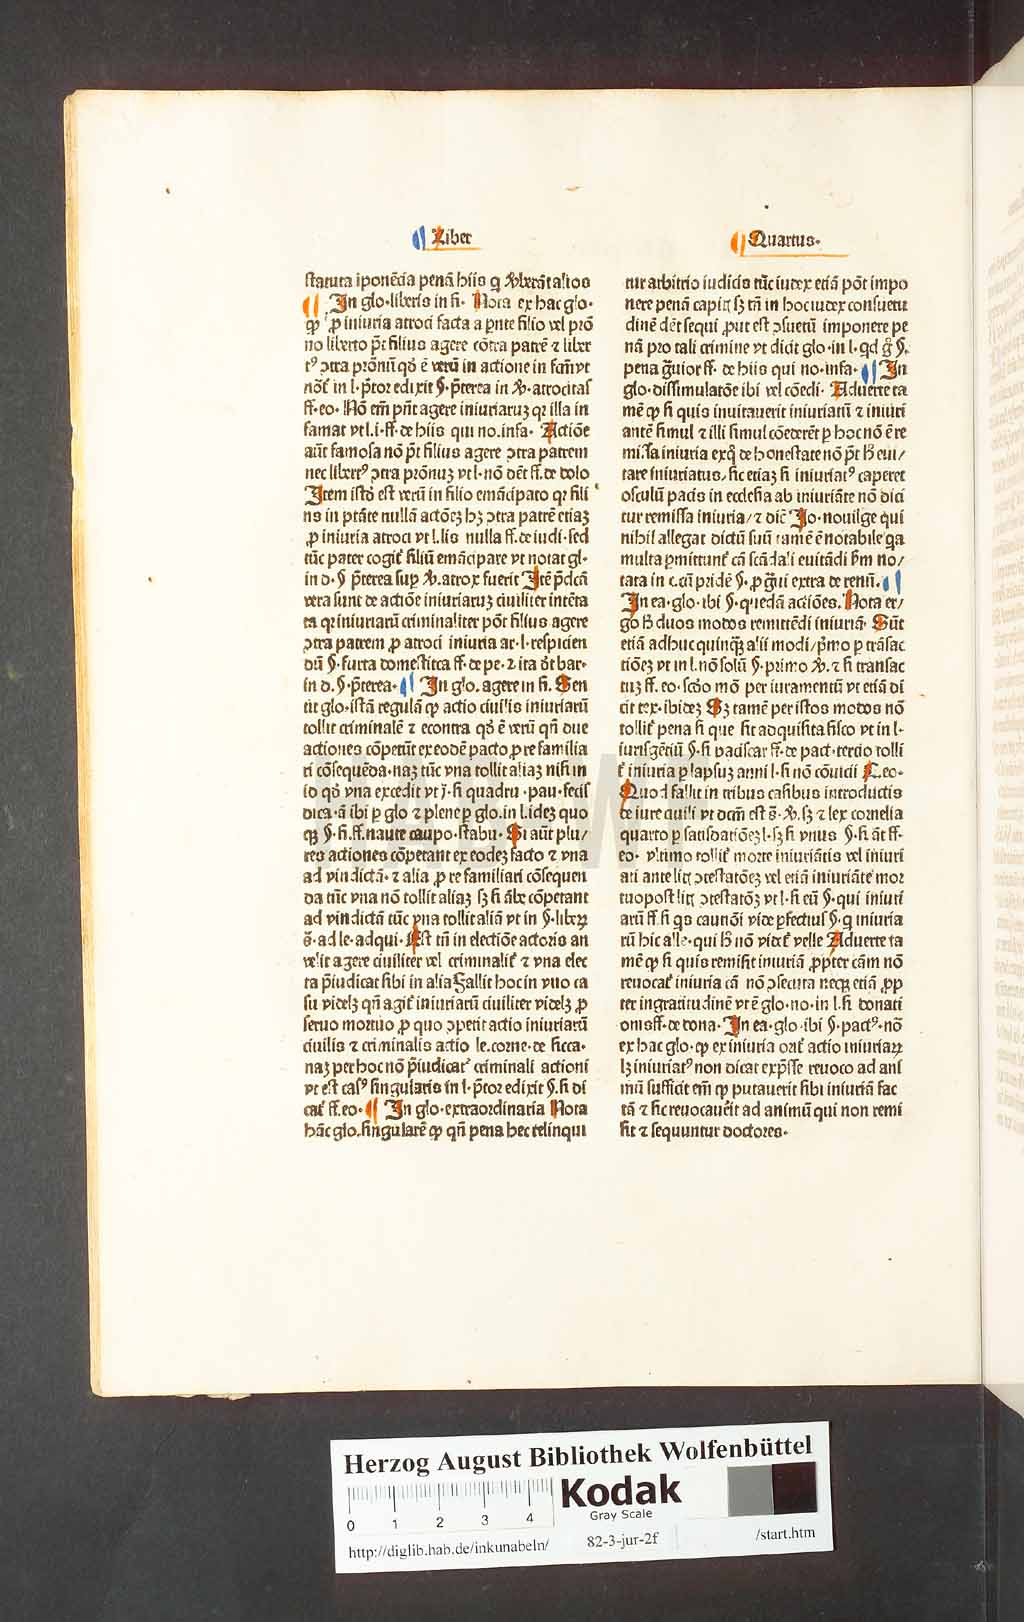 Liber
Quartus.
statuta īponēcia penā hiis q̄ v̓berāt alios
In glo. liberis in fi. Nota ex hac glo.
ꝙ ꝓ iniuria atroci facta a pr̄nte filio vel prō
no liberto pr̄t filius agere cōtra patrē ⁊ liber
tꝰ ɔtra prōnū qd̓ ē verū in actione in fcm̄ vt
nōt̄ in l. pr̄tor edixit §. pr̄terea in v̓. atrocitas
ff. eo. Nō em̄ pn̄t agere iniuriaruꝫ qr illa in
famat vt l. i. ff. de hiis qui no. infa. Actiōe
aūt famosa nō pr̄t filius agere ɔtra patrem
nec libertꝰ ɔtra prōnuꝫ vt l. nō dēt ff. de dolo
Item istd̓ est verū in filio emācipato qr fili
ns in ptāte nullā actōeꝫ hꝫ ɔtra patrē etiaꝫ
ꝓ iniuria atroci vt l. lis nulla ff. de iudi. sed
tūc pater cogit̄ filiū emācipare vt notat gl.
in d. § pr̄terea suꝑ v̓. atrox fuerit Itē p̄dcā
vera sunt de actiōe iniuriaruꝫ ciuiliter intēta
ta qr iniuriarū criminaliter pōt filius agere
ɔtra patrem ꝓ atroci iniuria ar. l. respicien
dū §. furta domestica ff. de pe. ⁊ ita d̓t bar.
in d. §. pr̄terea. In glo. agere in fi. Sen
tit glo. istā regulā ꝙ actio ciuilis iniuriarū
tollit criminalē ⁊ econtra qd̓ ē verū qn̄ due
actiones cōpetūt ex eodē pacto ꝓ re familia
ri cōsequēda. naꝫ tūc vna tollit aliaꝫ nisi in
io qd̓ vna excedit vt j. si quadru. pau. fecis
dica. ā ibi p̄ glo ⁊ plene p̄ glo. in l. ideꝫ quo
qꝫ §. fi. ff. naute caupo. stabu. Si aūt plu/
res actiones cōpetant ex eodeꝫ facto ⁊ vna
ad vindictā. ⁊ alia ꝓ re familiari cōsequen
da tūc vna nō tollit aliaꝫ sꝫ si ābe cōpetant
ad vindictā tūc vna tollit aliā vt in §. liberꝝ
s̄. ad le. adqui. Est tn̄ in electiōe actoris an
velit agere ciuiliter vel criminalit̄ ⁊ vna elec
ta p̄iudicat sibi in alia Fallit hoc in vno ca
su videlꝫ qn̄ agit̄ iniuriarū ciuiliter videlꝫ ꝓ
seruo mortuo ꝓ quo ɔpetit actio iniuriarū
ciuilis ⁊ criminalis actio le. corne. de sicca.
naꝫ per hoc nō p̄iudicatꝰ criminali actioni
vt est casꝰ singularis in l. pr̄tor edixit §. si di
cat̄ ff. eo. In glo. extraordinaria Nota
hāc glo. singularē ꝙ qn̄ pena hec relinqui
tur arbitrio iudicis tūc iudex etiā pōt impo
nere penā capit̄ sꝫ tn̄ in hoc iudex consuetu
dinē dēt sequi ꝓut est ɔsuetū imponere pe
nā pro tali crimine vt dicit glo. in l. qd̓ g̊ §.
pena g̓uior ff. de hiis qui no. infa. In
glo. dissimulatōe ibi vel cōedi. Aduerte ta
mē ꝙ si quis inuitauerit iniuriatū ⁊ iniuri
antē simul ⁊ illi simul cōederēt ꝑ hoc nō ē re
missa iniuria exq̄ de honestate nō pr̄t h̓ eui/
tare iniuriatus, sic etiaꝫ si iniuriatꝰ caperet
osculū pacis in ecclesia ab iniuriāte nō dici
tur remissa iniuria/ ⁊ dic̄ Io. nouilge qui
nihil allegat dictū suū tamē ē notabile qa
multa ꝑmittunt̄ cā scādali euitādi vm̄ no/
tata in c. cū pridē §. ꝓ g̓ui extra de renū.
In ea. glo. ibi §. quedā actiōes. Nota er/
go h̓ duos modos remittēdi iniuriā. Sūt
etiā adhuc quinqꝫ alii modi/ p̄mo ꝑ trāsac
tiōeꝫ vt in l. nō solū §. primo v̓. ⁊ si transac
tuꝫ ff. eo. scd̓o mō per iuramentū vt etiā di
cit tex. ibideꝫ Sꝫ tamē per istos modos nō
tollit̄ pena si que sit adquisita fisco vt in l.
iurisgētiū §. si paciscar ff. de pact. tercio tolli
t̄ iniuria ꝑ lapsuꝫ anni l. si nō cōuicii C. eo.
Quod fallit in tribus casibus introductis
de iure ciuili vt dcm̄ est s̄. v̓. sꝫ ⁊ lex cornelia
quarto ꝑ satisdatiōeꝫ l. sꝫ si vnus §. si āt ff.
eo. vltimo tollit̄ morte iniuriātis vel iniuri
ati ante litꝫ ɔtestatōeꝫ vel etiā iniuriātē mor
tuo post litꝫ ɔtestatōꝫ vt l. si eū §. qui iniuri
arū ff si qs caunōi vide ꝑfectus §. q̄ iniuria
rū hic alle. qui h̓ nō videt̄ velle Aduerte ta
mē ꝙ si quis remisit iniuriā ꝓpter cām nō
reuocat̄ iniuria cā nō ɔsecuta neqꝫ etiā ꝓp
ter ingratitudinē vt ē glo. no. in l. si donati
onis ff. de dona. In ea. glo. ibi §. pactꝰ. nō
ex hac glo. ꝙ ex iniuria orit̄ actio iniuriaꝝ
lꝫ iniuriatꝰ non dicat exp̄sse reuoco ad ani
mū sufficit em̄ ꝙ putauerit sibi iniuriā fac
tā ⁊ sic reuocauēit ad animū qui non remi
sit ⁊ sequuntur doctores.
HAB WF
Herzog August Bibliothek Wolfenbüttel
0 1 2 3 4
Kodak
Gray Scale
http://diglib.hab.de/inkunabeln/
82-3-jur-2f
/start.htm